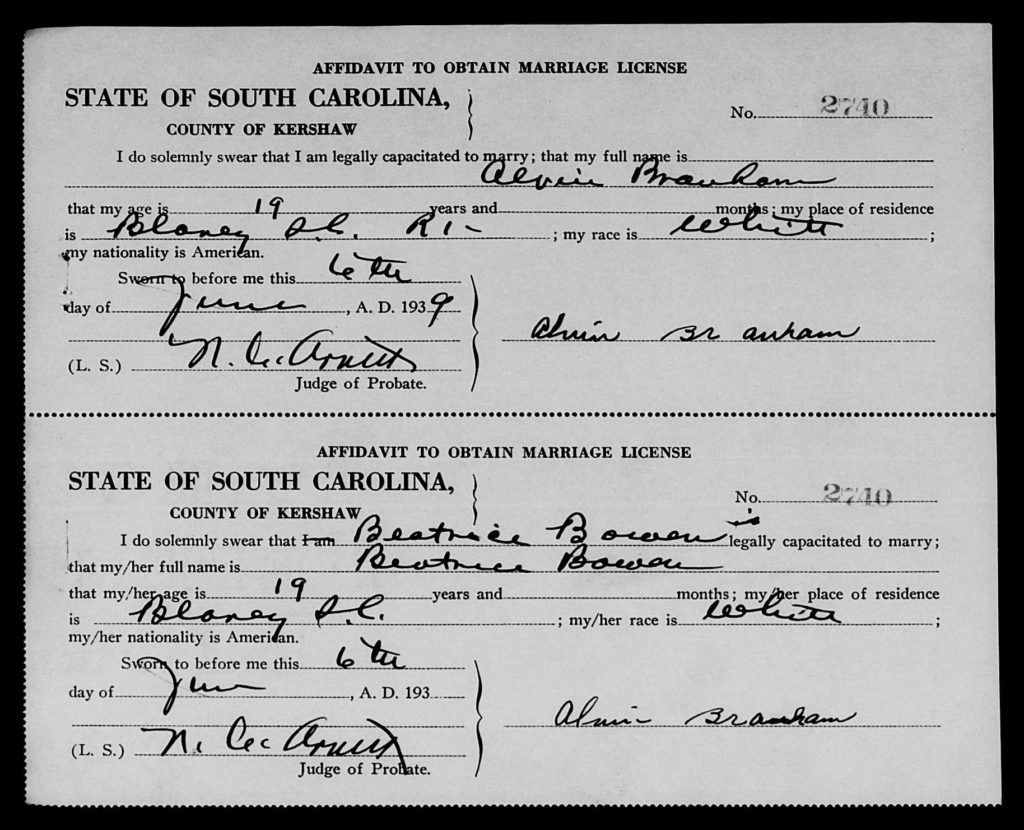 AFFIDAVIT TO OBTAIN MARRIAGE LICENSE
STATE OF SOUTH CAROLINA,
No. 2740
COUNTY OF KERSHAW
I do solemnly swear that I am legally capacitated to marry; that my full name is
Alvin Branham
that my age is 19 years and months; my place of residence
is Blaney S.C. R 1- ; my race is White ;
my nationality is American.
Sworn to before me this 6th
day of June, A. D. 1939
Alvin Branham
(L. S.) N. C. Arnett
Judge of Probate.
AFFIDAVIT TO OBTAIN MARRIAGE LICENSE
STATE OF SOUTH CAROLINA,
No. 2740
COUNTY OF KERSHAW
I do solemnly swear that I am Beatrice Bowen is legally capacitated to marry;
that my/her full name is Beatrice Bowen
that my/her age is 19 years and months; my/her place of residence
is Blaney S.C. ; my/her race is White ;
my/her nationality is American.
Sworn to before me this 6th
day of June, A. D. 193
Alvin Branham
(L. S.) N. C. Arnett
Judge of Probate.